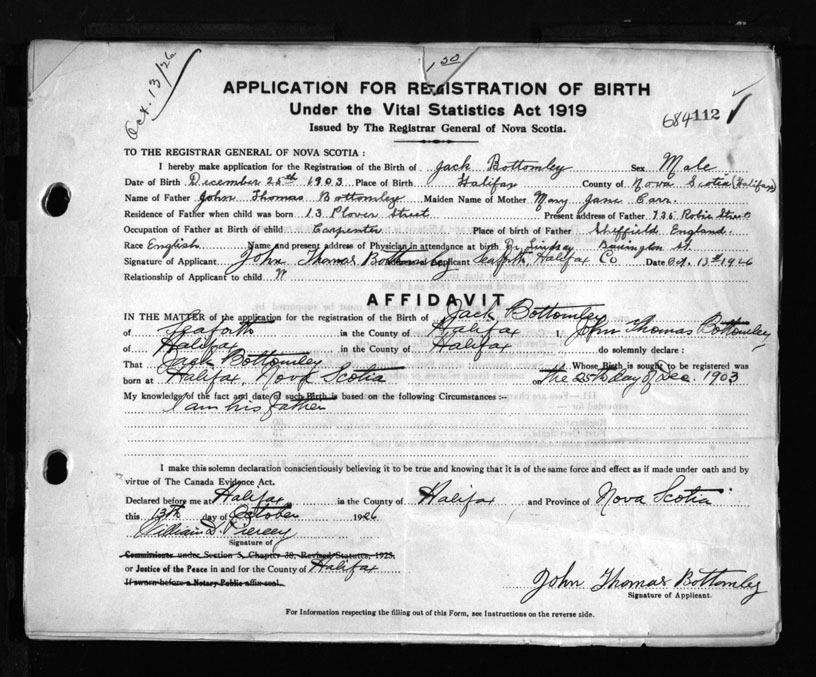 Oct. 13/26
1 50
APPLICATION FOR REGISTRATION OF BIRTH
Under the Vital Statistics Act 1919
Issued by The Registrar General of Nova Scotia.
684112 ✓
TO THE REGISTRAR GENERAL OF NOVA SCOTIA :
I hereby make application for the Registration of the Birth of Jack Bottomley Sex Male
Date of Birth December 25th 1903 Place of Birth Halifax County of Nova Scotia (Halifax)
Name of Father John Thomas Bottomley Maiden Name of Mother Mary Jane Carr.
Residence of Father when child was born 13 Plover Street Present address of Father 736 Robie Street
Occupation of Father at Birth of child Carpenter Place of birth of Father Sheffield England.
Race English Name and present address of Physician in attendance at birth Dr. Lindsay St
Signature of Applicant John Thomas Bottomley Applicant Seaforth, Halifax Co Date Oct. 13th 1926
Relationship of Applicant to child
AFFIDAVIT
IN THE MATTER of the application for the registration of the Birth of Jack Bottomley
of Seaforth in the County of Halifax I, John Thomas Bottomley
of Halifax in the County of Halifax do solemnly declare :
That Jack Bottomley Whose Birth is sought to be registered was
born at Halifax, Nova Scotia on the 25th day of Dec. 1903
My knowledge of the fact and date of such Birth is based on the following Circumstances :-
I am his father
I make this solemn declaration conscientiously believing it to be true and knowing that it is of the same force and effect as if made under oath and by
virtue of The Canada Evidence Act.
Declared before me at Halifax in the County of Halifax and Province of Nova Scotia
this 13th day of October 1926
William D. Piercey
Signature of
Commissions under Section 5, Chapter 38, Revised Statutes, 1923.
or Justice of the Peace in and for the County of Halifax
If sworn before a Notary Public affix seal.
John Thomas Bottomley
Signature of Applicant.
For Information respecting the filling out of this Form, see Instructions on the reverse side.